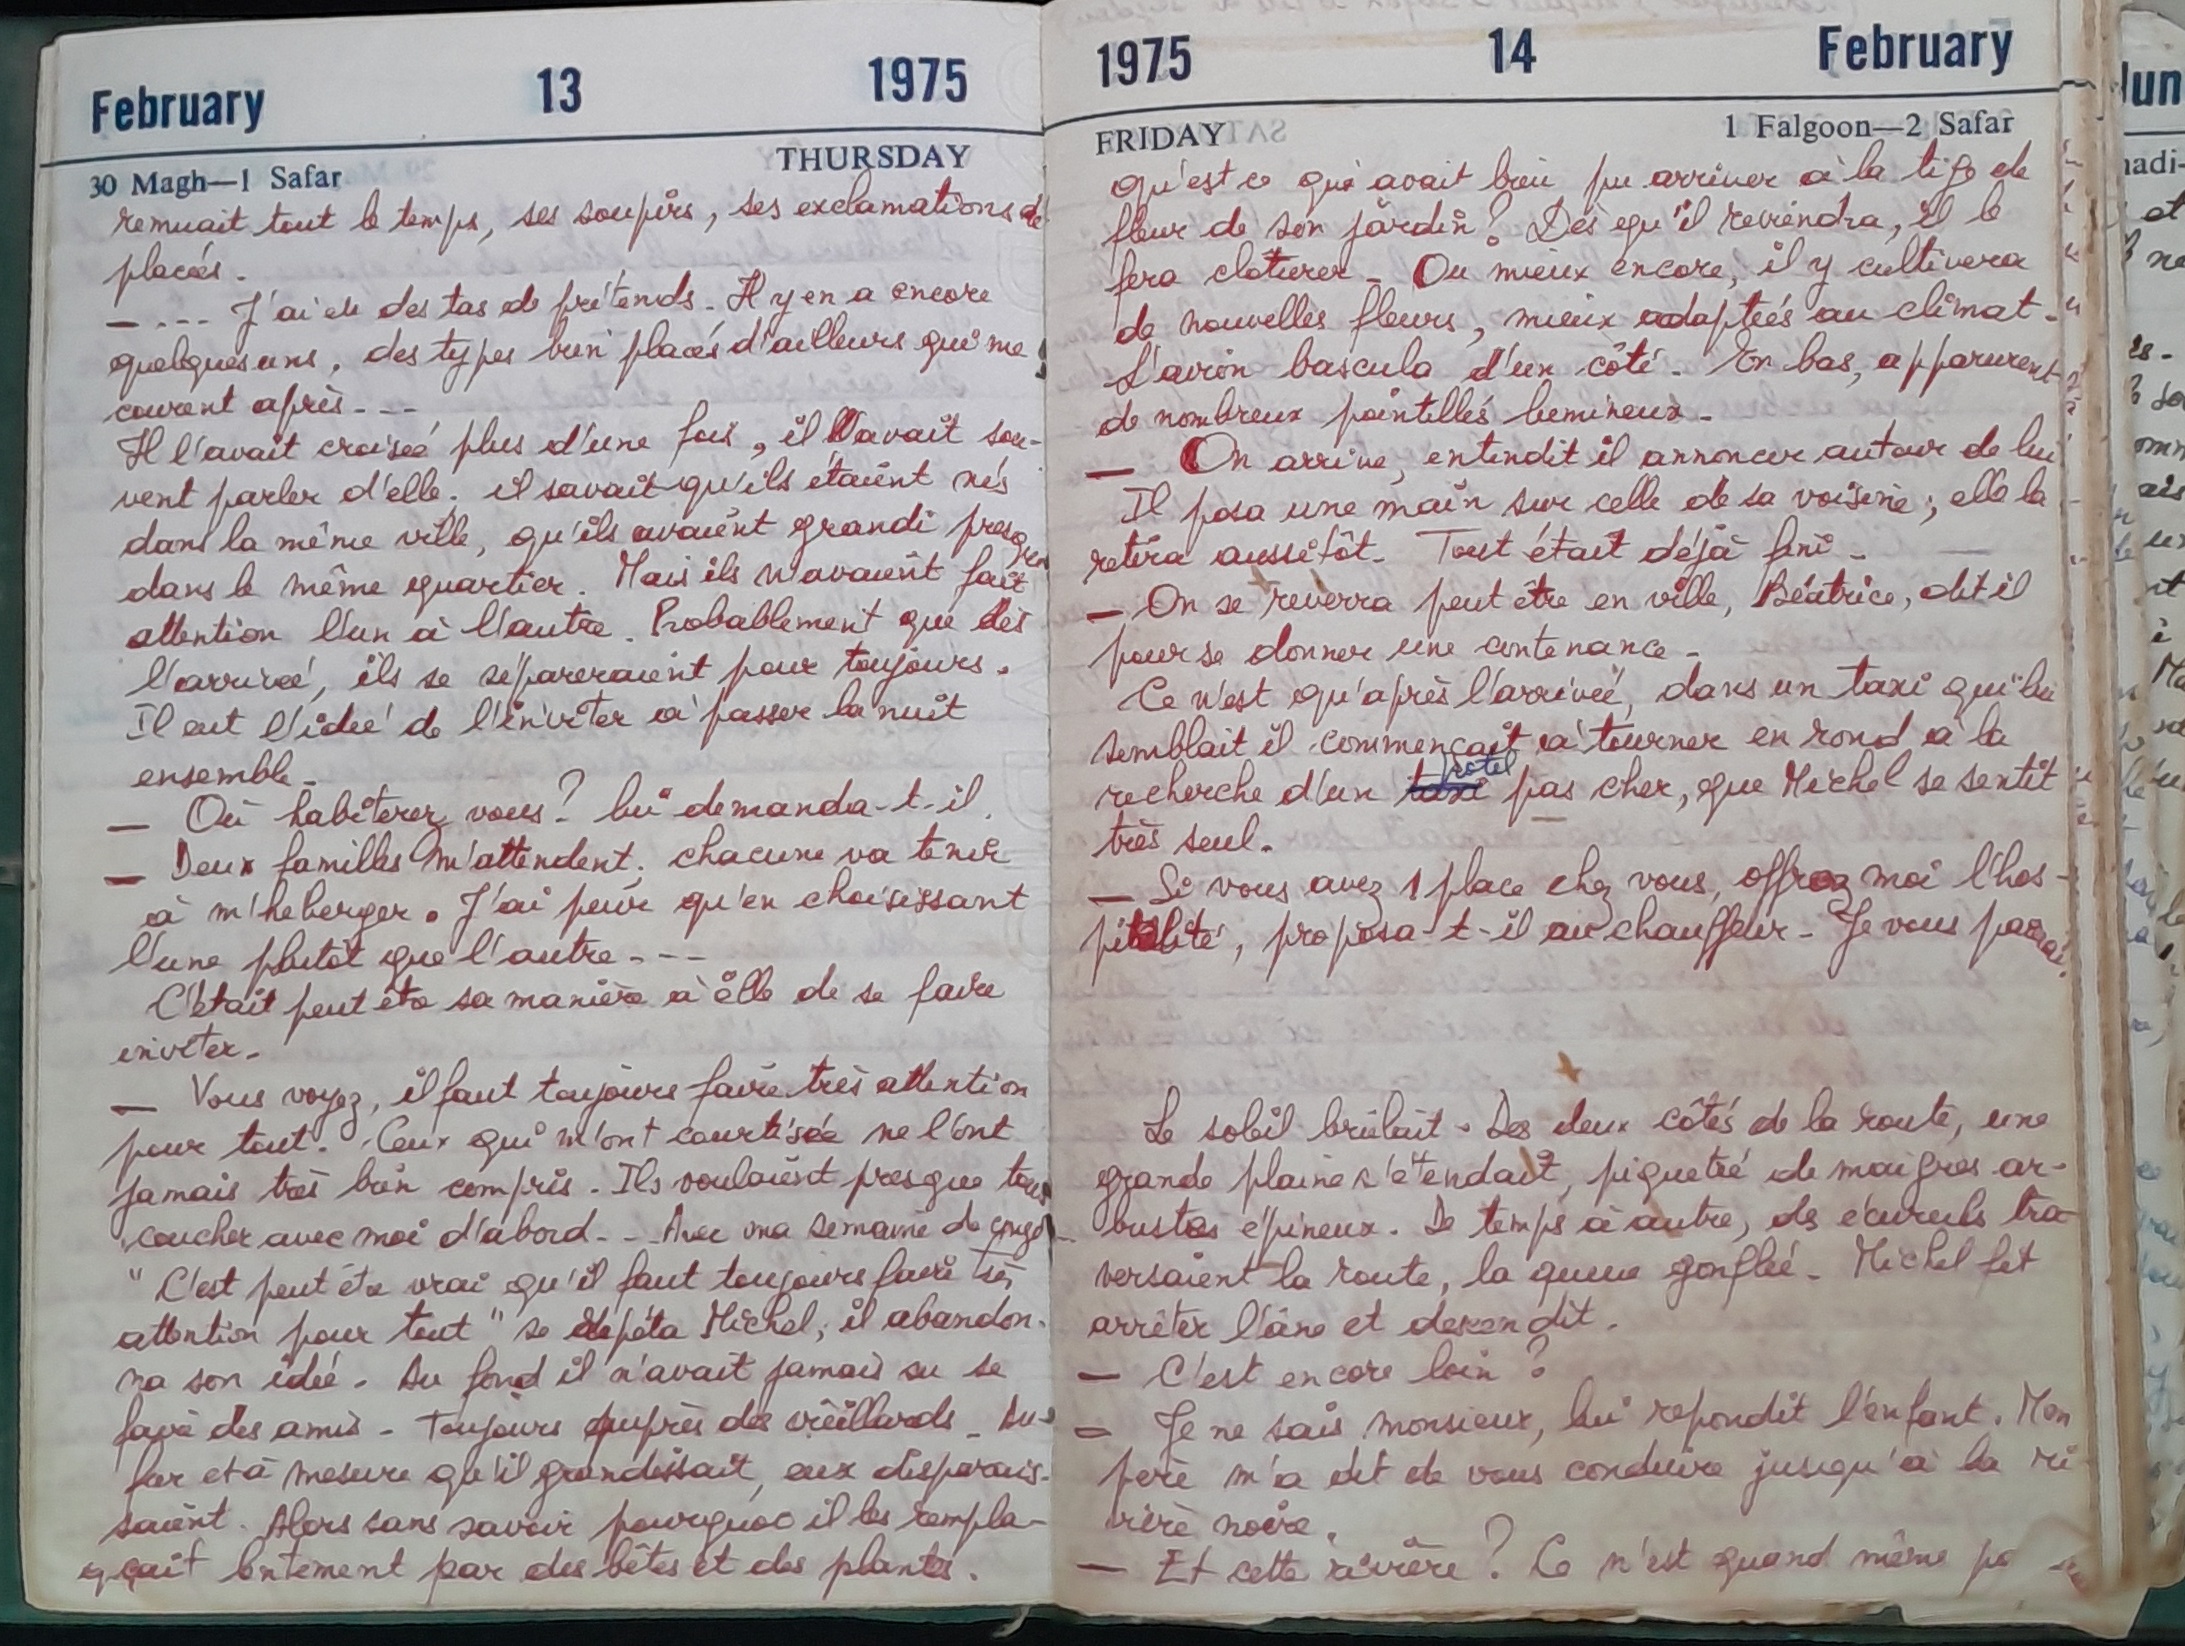 February 13 1975
THURSDAY
30 Magh—1 Safar
remuait tout le temps, ses soupirs, ses exclamations dé
placés.
— --- J'ai eu des tas de prétends. Il y en a encore
quelques uns, des types bien placés d'ailleurs qui me
courent après ---
Il l'avait croisée plus d'une fois, il l'avait sou-
vent parler d'elle. il savait qu'ils étaient nés
dans la même ville, qu'ils avaient grandi presque
dans le même quartier. Mais ils n'avaient fait
attention l'un à l'autre. Probablement que dès
l'arrivée, ils se sépareraient pour toujours.
Il eut l'idée de l'inviter à passer la nuit
ensemble -
— Où habiterez vous? lui demanda-t-il.
— Deux familles m'attendent; chacune va tenir
à m'heberger. J'ai peur qu'en choisissant
l'une plutôt que l'autre ---
C'était peut être sa manière à elle de se faire
inviter -
— Vous voyez, il faut toujours faire très attention
pour tout. Ceux qui m'ont courtisée ne l'ont
jamais très bien compris. Ils voulaient presque tous
coucher avec moi d'abord -- Avec ma semaine de congé
" C'est peut être vrai qu'il faut toujours faire très
attention pour tout " se répéta Michel; il abandon-
na son idée. Au fond il n'avait jamais su se
faire des amis - Toujours auprès des vieillards - Au
fur et à mesure qu'il grandissait, eux disparais-
saient. Alors sans savoir pourquoi il les rempla-
çait lentement par des bêtes et des plantes.
1975 14 February
FRIDAY 1 Falgoon—2 Safar
qu'est ce qui avait bien pu arriver à la tige de
fleur de son jardin? Dès qu'il reviendra, il le
fera cloturer - Ou mieux encore, il y cultivera
de nouvelles fleurs, mieux adaptées au climat -
L'avion bascula d'un côté. En bas, apparurent
de nombreux pointillés lumineux -
— On arrive, entendit il annoncer autour de lui
Il posa une main sur celle de sa voisine; elle la
retira aussitôt. Tout était déjà fini -
— On se reverra peut être en ville, Béatrice, dit il
pour se donner une contenance -
Ce n'est qu'après l'arrivée, dans un taxi qui lui
semblait il commençait à tourner en rond à la
recherche d'un taxi hotel pas cher, que Michel se sentit
très seul.
— Si vous avez 1 place chez vous, offrez moi l'hos-
pitalité, proposa-t-il au chauffeur - Je vous paierai.
Le soleil brûlait. Des deux côtés de la route, une
grande plaine s'étendait, piquetée de maigres ar-
bustes épineux. De temps à autre, des écureuils tra-
versaient la route, la queue gonflée - Michel fit
arrêter l'âne et descendit.
— C'est encore loin?
— Je ne sais monsieur, lui repondit l'enfant. Mon
père m'a dit de vous conduire jusqu'à la ri
vière noire.
— Et cette rivière? Ce n'est quand même pa